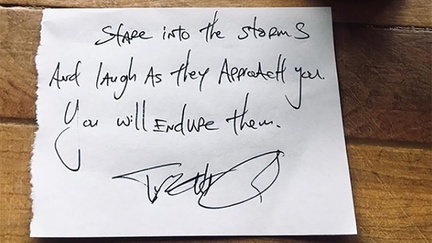 Stare into the storms
And laugh As they Approach you
You will Endure them.